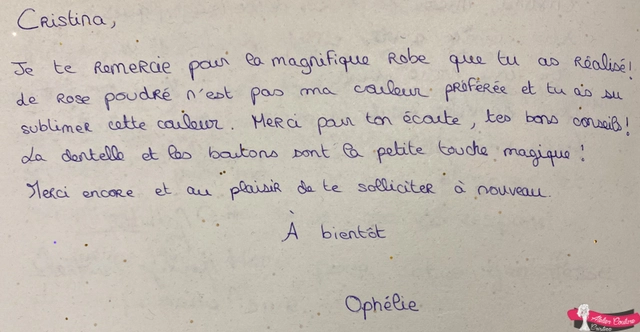 Cristina,
Je te remercie pour la magnifique robe que tu as réalisé!
de rose poudré n'est pas ma couleur préférée et tu as su
sublimer cette couleur. Merci pour ton écoute, tes bons conseils!
La dentelle et les boutons sont la petite touche "magique!
Merci encore et au plaisir de te solliciter à nouveau.
À bientôt
Ophélie
Atelier Couture